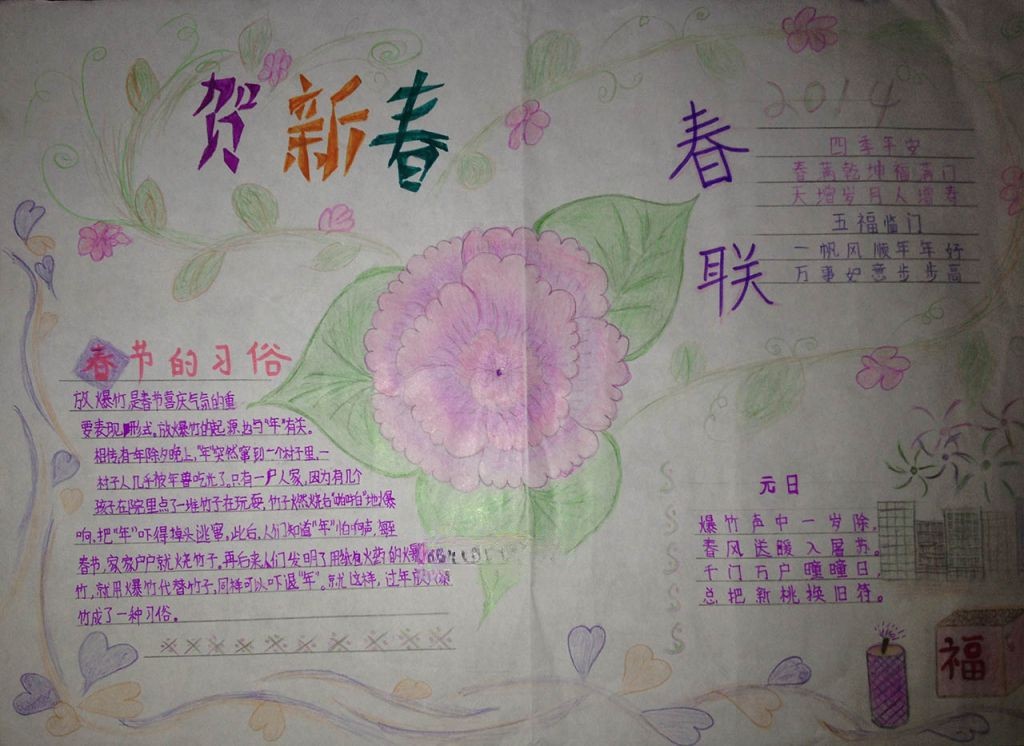 贺新春
春联
2014
四季平安
春满乾坤福满门
天增岁月人增寿
五福临门
一帆风顺年年好
万事如意步步高
春节的习俗
放爆竹是春节喜庆气氛的重
要表现形式。放爆竹的起源也与"年"有关。
相传,有年除夕晚上,"年"突然窜到一个村子里,一
村子人几乎被年兽吃光了,只有一户人家,因为有几个
孩子在院里点了一堆竹子在玩耍,竹子燃烧后"啪啪"地爆
响,把"年"吓得掉头逃窜。此后,人们知道"年"怕响声,每至
春节,家家户户就烧竹子。再后来人们发明了用纸包火药的爆
竹,就用爆竹代替竹子,同样可以吓退"年"。就这样,过年放
竹成了一种习俗。
元日
爆竹声中一岁除。
春风送暖入屠苏。
千门万户曈曈日
总把新桃换旧符。
福